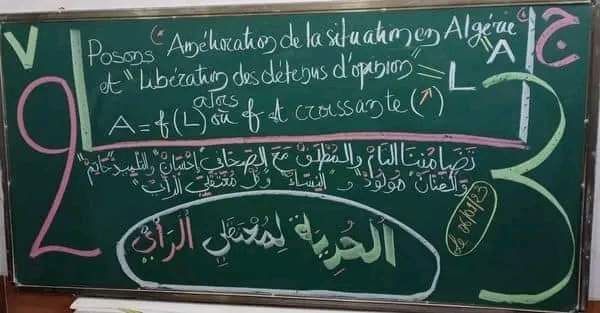 Posons "Amélioration de la situation en Algérie" = A
et "Libération des détenus d'opinion" = L
alors
A = f(L) où f est croissante (↗)
تضامننا التام والمطلق مع الصحافي "إحسان" والطبيب "حاتم"
والفنان "مولود" و "النساء" وكل معتقلي الرأي
الحرية لمعتقلي الرأي
V
ج
2
3